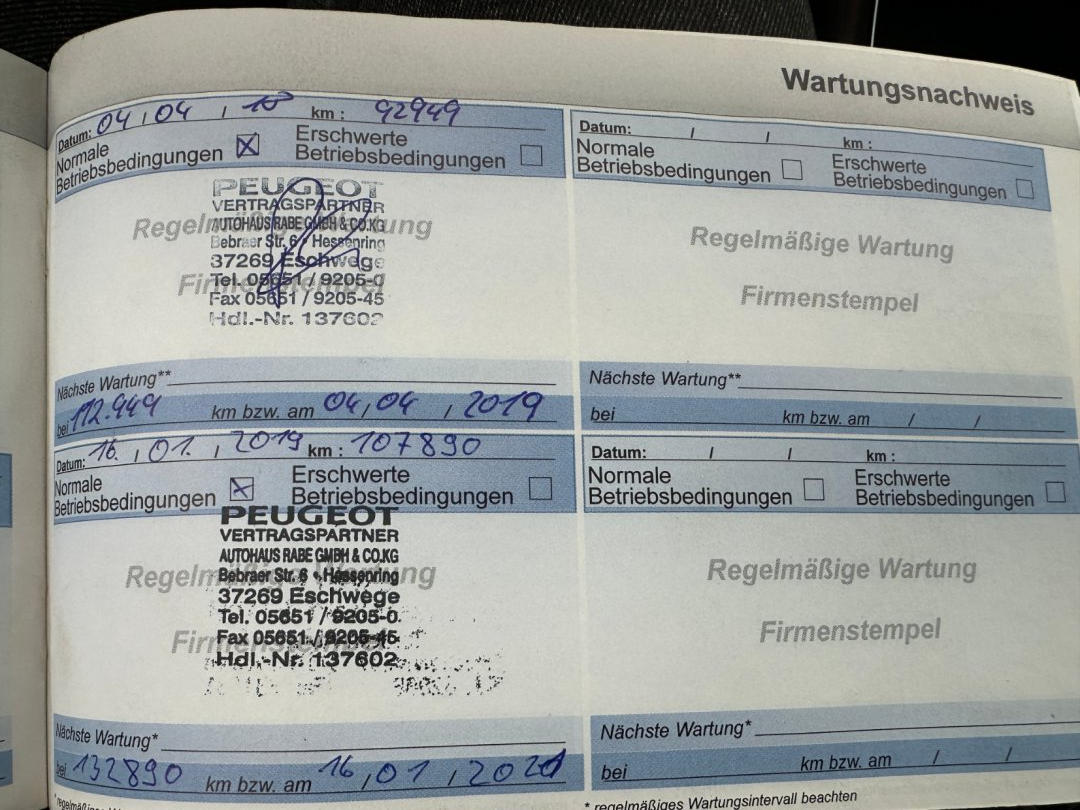 Wartungsnachweis
Datum: 04 / 04 / 18 km : 92949
Normale Betriebsbedingungen ☒ Erschwerte Betriebsbedingungen ☐
Regelmäßige Wartung
Firmenstempel
PEUGEOT
VERTRAGSPARTNER
AUTOHAUS RABE GMBH & CO.KG
Bebraer Str. 6 • Hessenring
37269 Eschwege
Tel. 05651 / 9205-0
Fax 05651 / 9205-45
Hdl.-Nr. 137602
Nächste Wartung**
bei 112.949 km bzw. am 04 / 04 / 2019
Datum: 16. / 01. / 2019 km : 107890
Normale Betriebsbedingungen ☒ Erschwerte Betriebsbedingungen ☐
Regelmäßige Wartung
Firmenstempel
PEUGEOT
VERTRAGSPARTNER
AUTOHAUS RABE GMBH & CO.KG
Bebraer Str. 6 • Hessenring
37269 Eschwege
Tel. 05651 / 9205-0
Fax 05651 / 9205-45
Hdl.-Nr. 137602
Nächste Wartung*
bei 132890 km bzw. am 16 / 01 / 2021
Datum: / / km :
Normale Betriebsbedingungen ☐ Erschwerte Betriebsbedingungen ☐
Regelmäßige Wartung
Firmenstempel
Nächste Wartung**
bei km bzw. am / /
Datum: / / km :
Normale Betriebsbedingungen ☐ Erschwerte Betriebsbedingungen ☐
Regelmäßige Wartung
Firmenstempel
Nächste Wartung*
bei km bzw. am / /
* regelmäßiges Wartungsintervall beachten